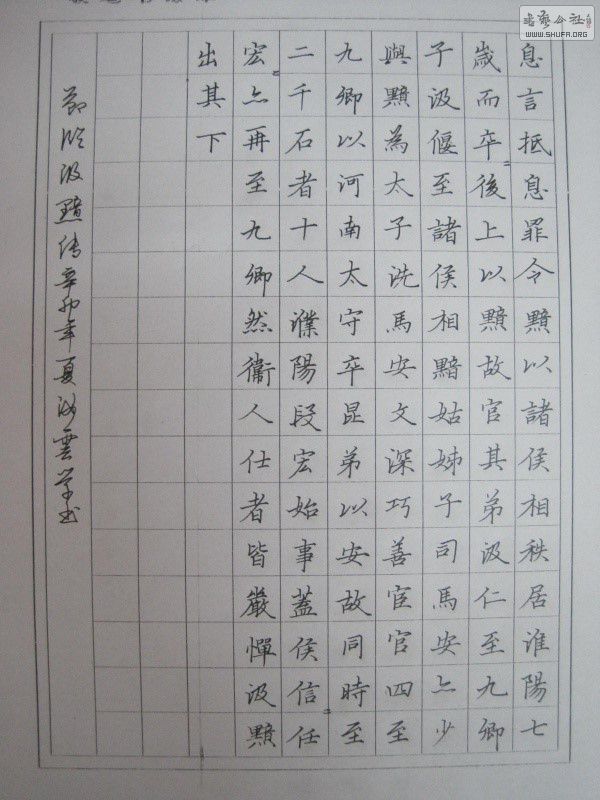 息言抵息罪令黯以諸侯相秩居淮陽七
歲而卒後上以黯故官其弟汲仁至九卿
子汲偃至諸侯相黯姑姊子司馬安亦少
與黯為太子洗馬安文深巧善宦官四至
九卿以河南太守卒昆弟以安故同時至
二千石者十人濮陽段宏始事蓋侯信任
宏亦再至九卿然衞人仕者皆嚴憚汲黯
出其下
節临汲黯传辛卯年夏雲学书
書法公社
WWW.SHUFA.ORG